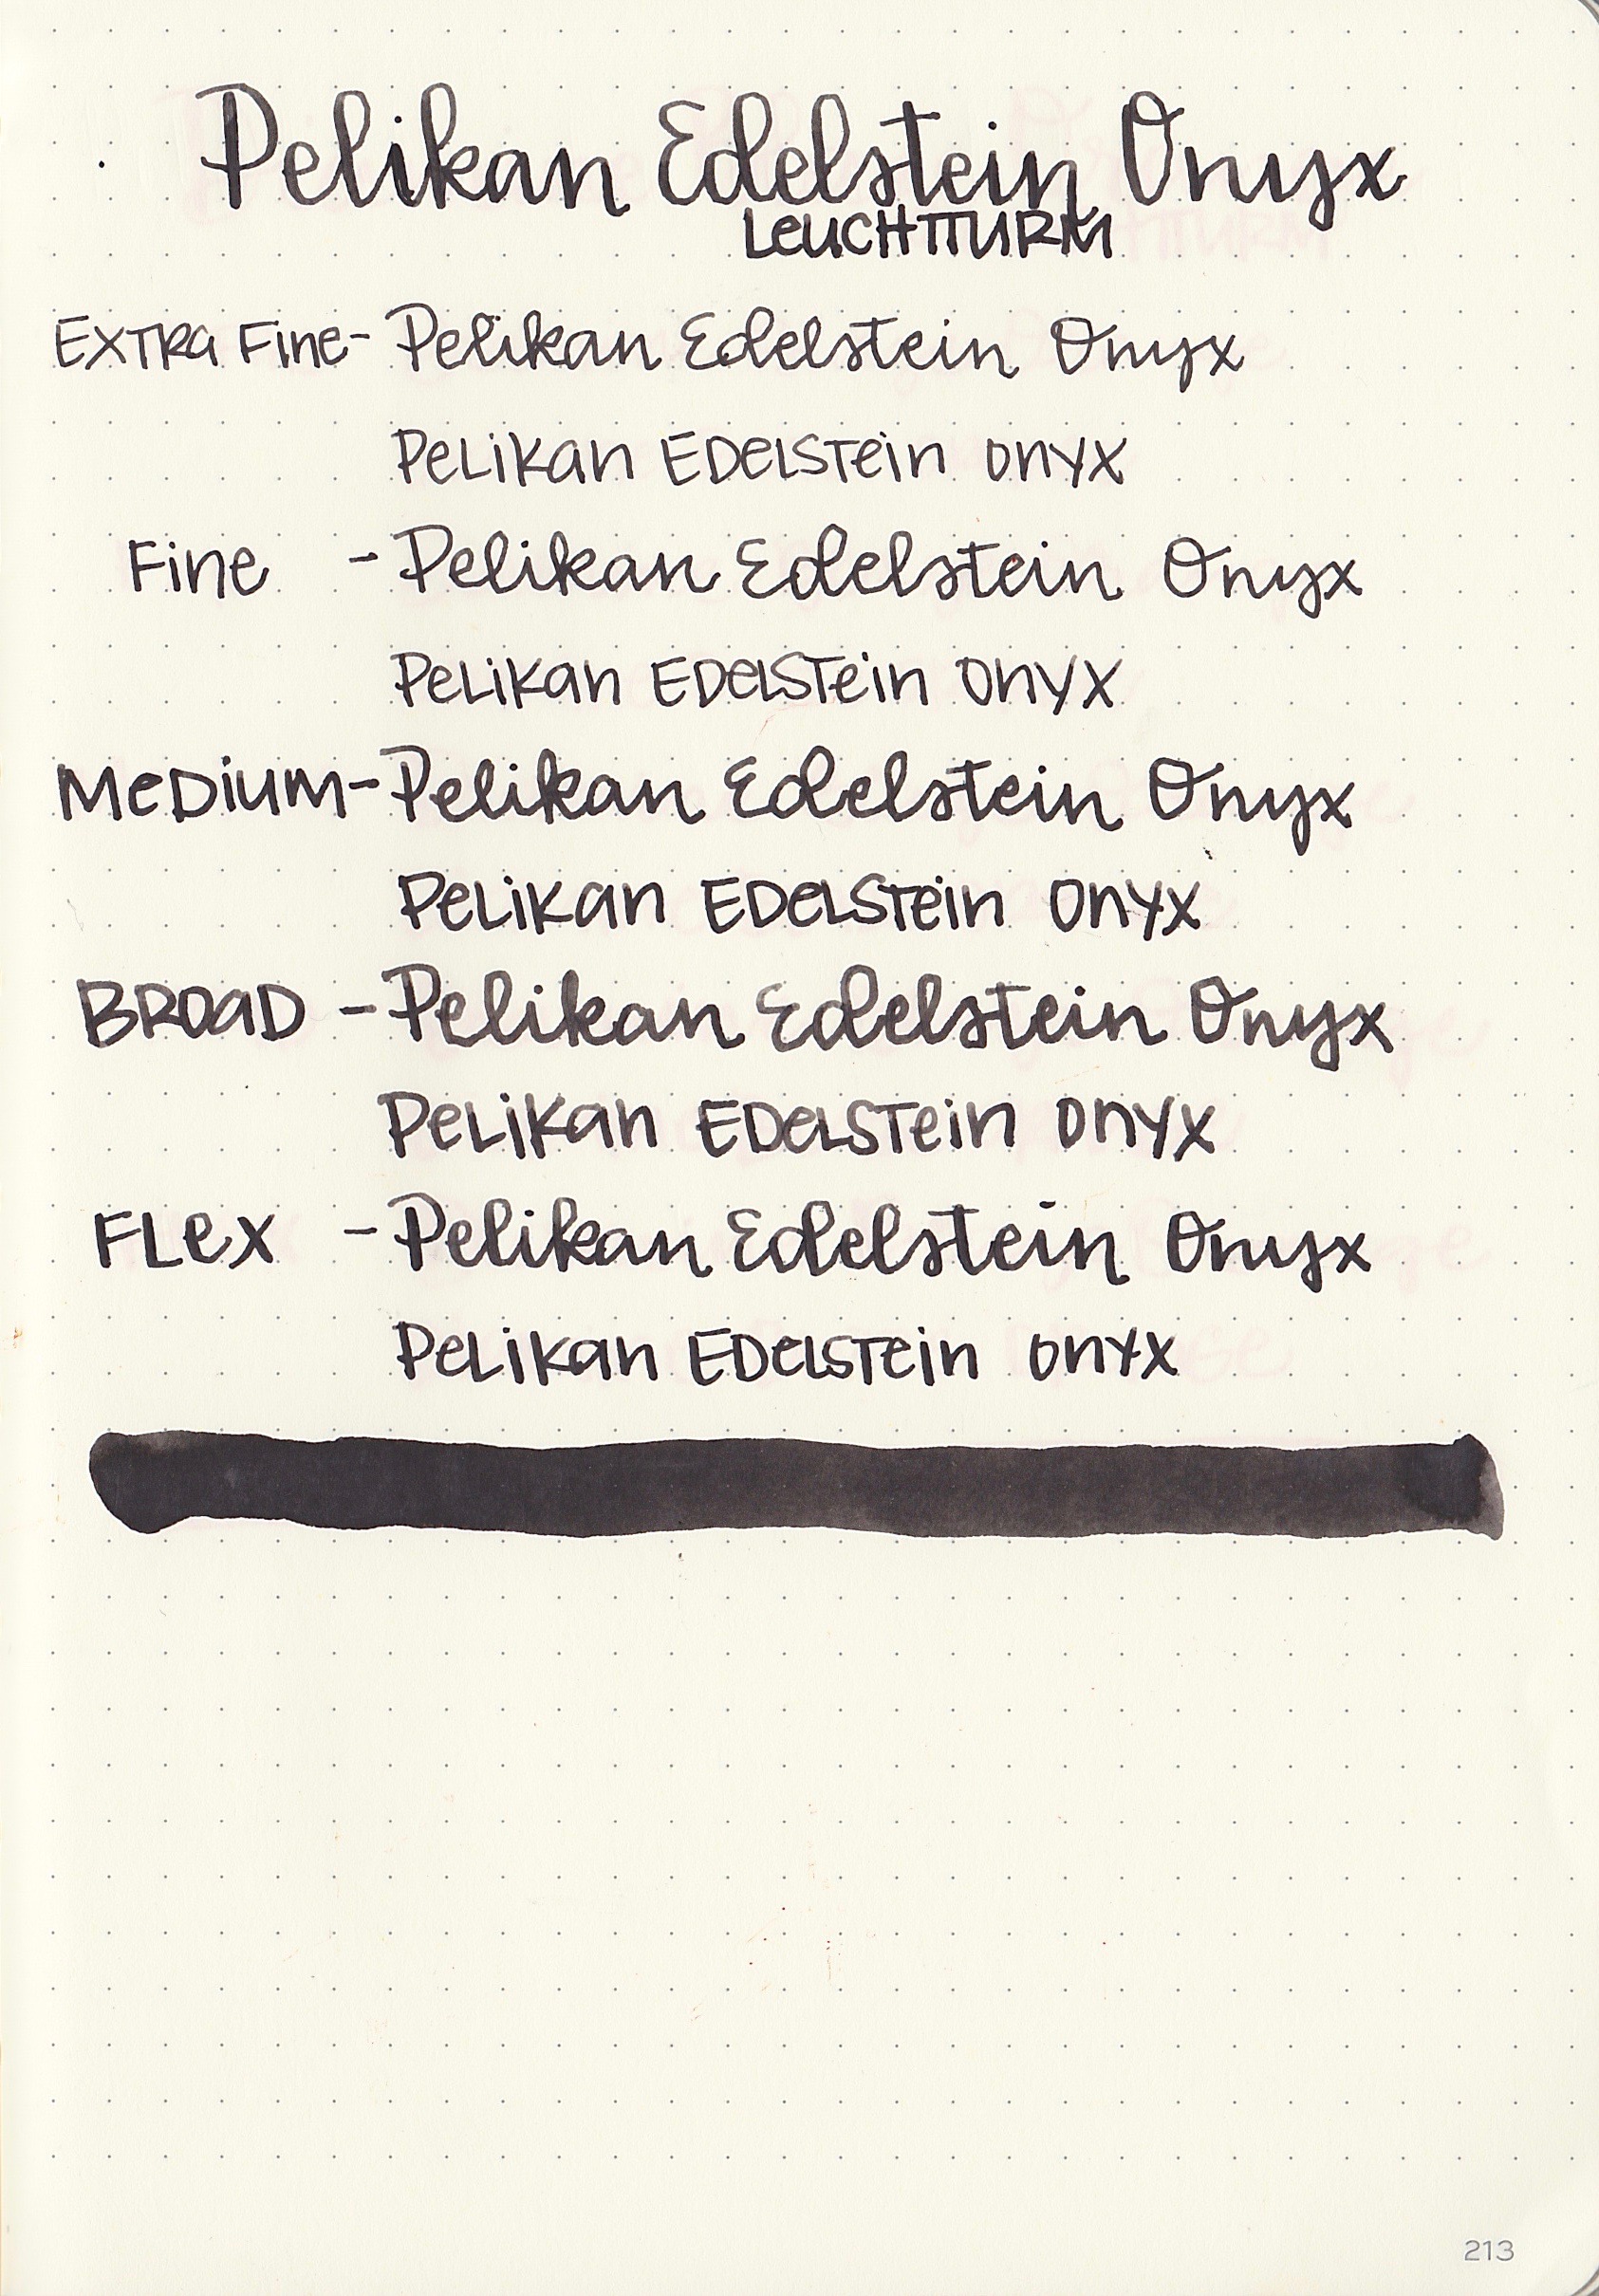 Pelikan Edelstein Onyx
LeuCHTTURM
EXTRa Fine - Pelikan Edelstein Onyx
PeLiKan EDeLSTein Onyx
Fine - Pelikan Edelstein Onyx
PeLiKan EDeLSTein Onyx
MeDiuM - Pelikan Edelstein Onyx
PeLiKan EDeLSTein Onyx
BROaD - Pelikan Edelstein Onyx
PeLiKan EDeLSTein Onyx
FLex - Pelikan Edelstein Onyx
PeLiKan EDeLSTein Onyx
213